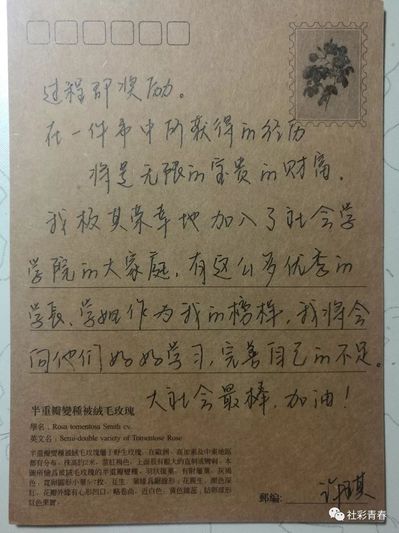 过程即奖励。
在一件事中所获得的经历
将是无限的宝贵的财富。
我极其荣幸地加入了社会学
学院的大家庭，有这么多优秀的
学长、学姐作为我的榜样，我将会
向他们好好学习，完善自己的不足。
大社会最棒，加油！
半重瓣變種被絨毛玫瑰
學名：Rosa tomentosa Smith cv.
英文名：Semi-double variety of Tomentose Rose
半重瓣變種被絨毛玫瑰屬于野生玫瑰，在歐洲、高加索及中東地區
都有分布。株高約2米，
郵編：
许琪
社彩青春